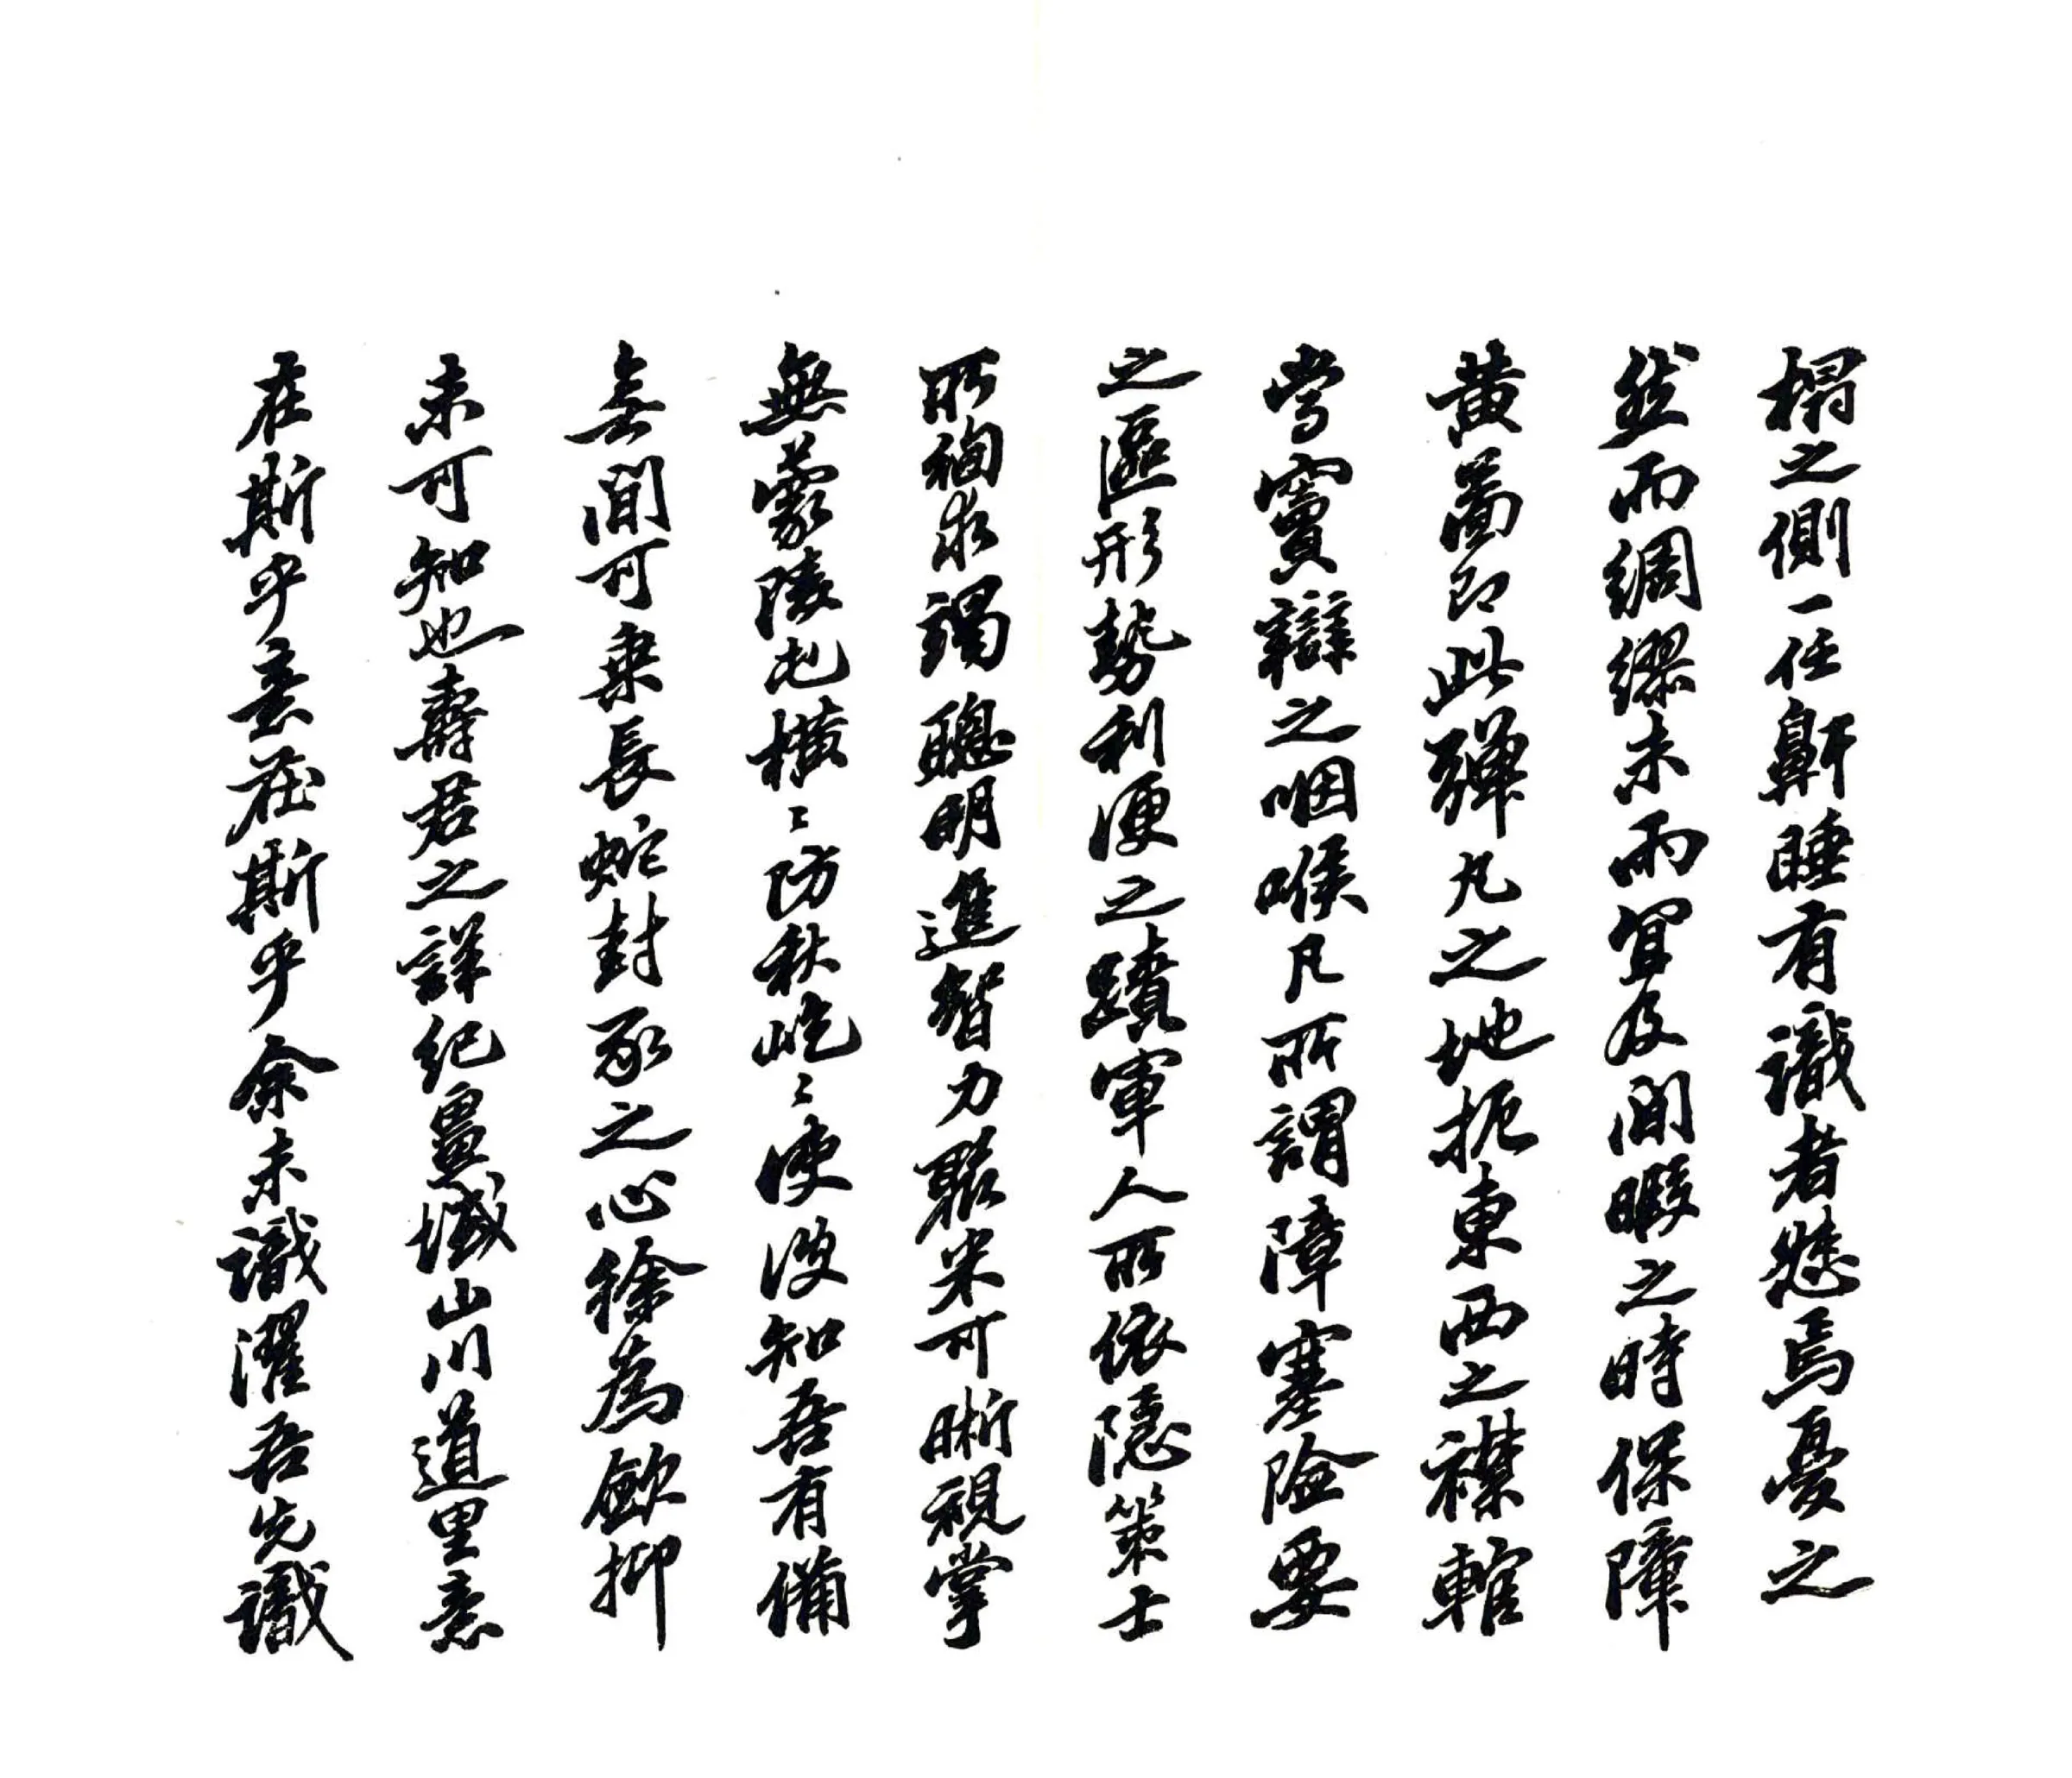 榻之側一任鼾睡有識者愁焉憂之
然而綢繆未雨宜及閒暇之時保障
黃啚即此彈丸之地扼東西之襟轄
當竇辯之咽喉凡所謂障塞險要
之區形勢利便之蹟軍人所依隱策士
所徇求竭聰明進智力聚米可晰視掌
無蒙陵屯橫〻防秋屹〻使彼知吾有備
無間可乘長蛇封豕之心徐為斂抑
未可知也壽君之詳紀畺域山川道里意
在斯乎意在斯乎余未識濯吾先識